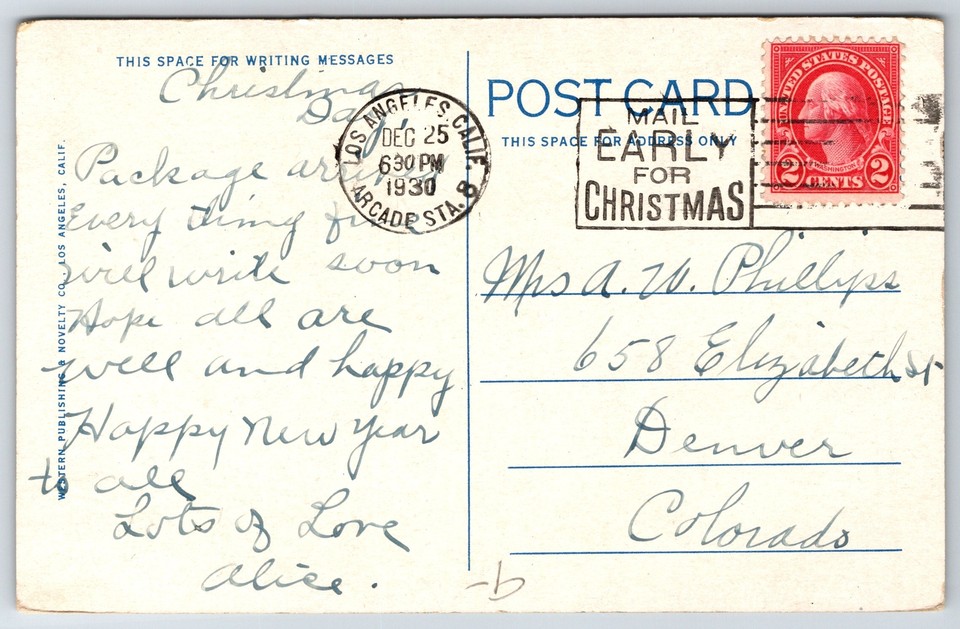 THIS SPACE FOR WRITING MESSAGES
Christmas
Day
Package arrived
Every thing fine
will write soon
Hope all are
well and happy
Happy New Year
to all
Lots of Love
Alice.
WESTERN PUBLISHING & NOVELTY CO., LOS ANGELES, CALIF.
LOS ANGELES, CALIF.
DEC 25
630 PM
1930
ARCADE STA. 8
POST CARD
THIS SPACE FOR ADDRESS ONLY
MAIL
EARLY
FOR
CHRISTMAS
UNITED STATES POSTAGE
WASHINGTON
2 CENTS 2
Mrs A. W. Phillips
658 Elizabeth St
Denver
Colorado